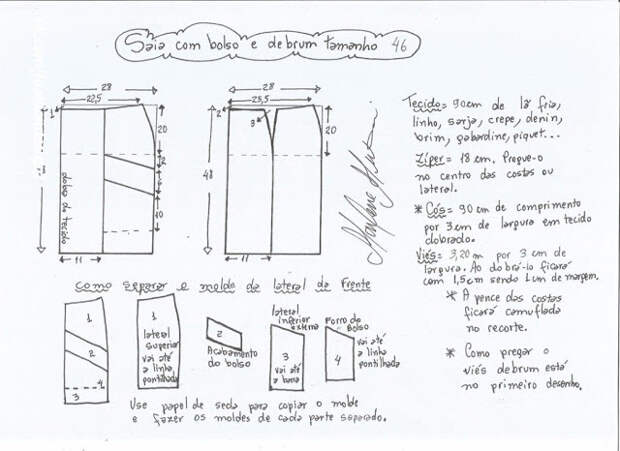 Saia com bolso e debrum tamanho 46
28
22,5
1
20
2
10
dobra do tecido
11
28
23,5
2
3
20
48
11
Tecido = 90cm de lã fria,
linho, sarja, crepe, denin,
brim, gabardine, piquet...
Zíper = 18 cm. Pregue-o
no centro das costas ou
lateral.
* Cós = 90 cm de comprimento
por 3cm de largura em tecido
dobrado.
Viés = 3,20 m por 3 cm de
largura. Ao dobrá-lo ficará
com 1,5cm sendo 1cm de margem.
* A pence das costas
ficará camuflada
no recorte.
* Como pregar o
viés debrum está
no primeiro desenho.
como separar o molde da lateral da frente
1
2
4
3
1
lateral
superior
vai até
a linha
pontilhada
2
Acabamento
do bolso
lateral
inferior
externa
3
vai até
a barra
Forro do
bolso
vai até
a linha
pontilhada
4
Use papel de seda para copiar o molde
e fazer os moldes de cada parte separado.